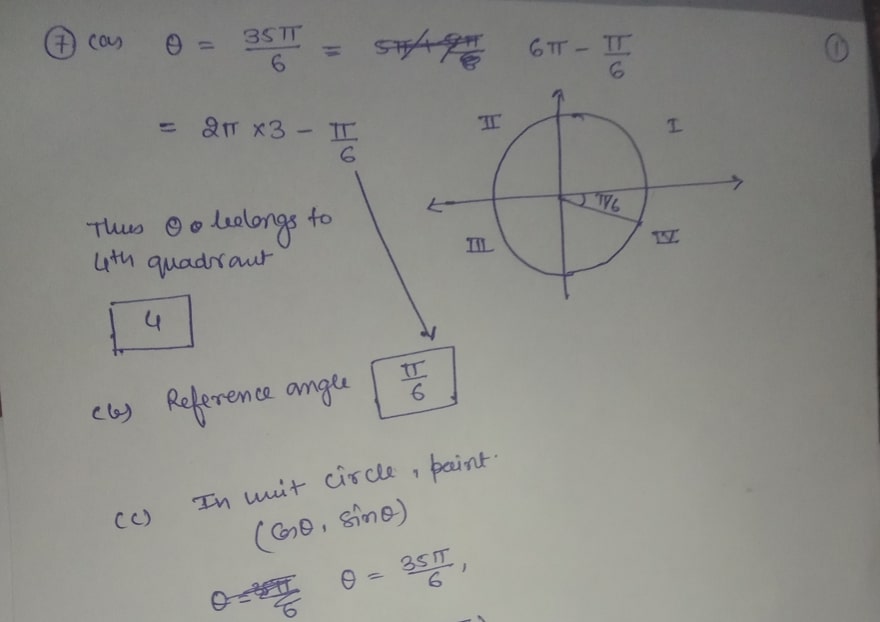 ⑦ (a) θ = 35π/6 = 6π - π/6 ①
= 2π ×3 - π/6
II I
π/6
III IV
Thus θ belongs to
4th quadrant
4
(b) Reference angle π/6
(c) In unit circle, point.
(cosθ, sinθ)
θ = 35π/6,